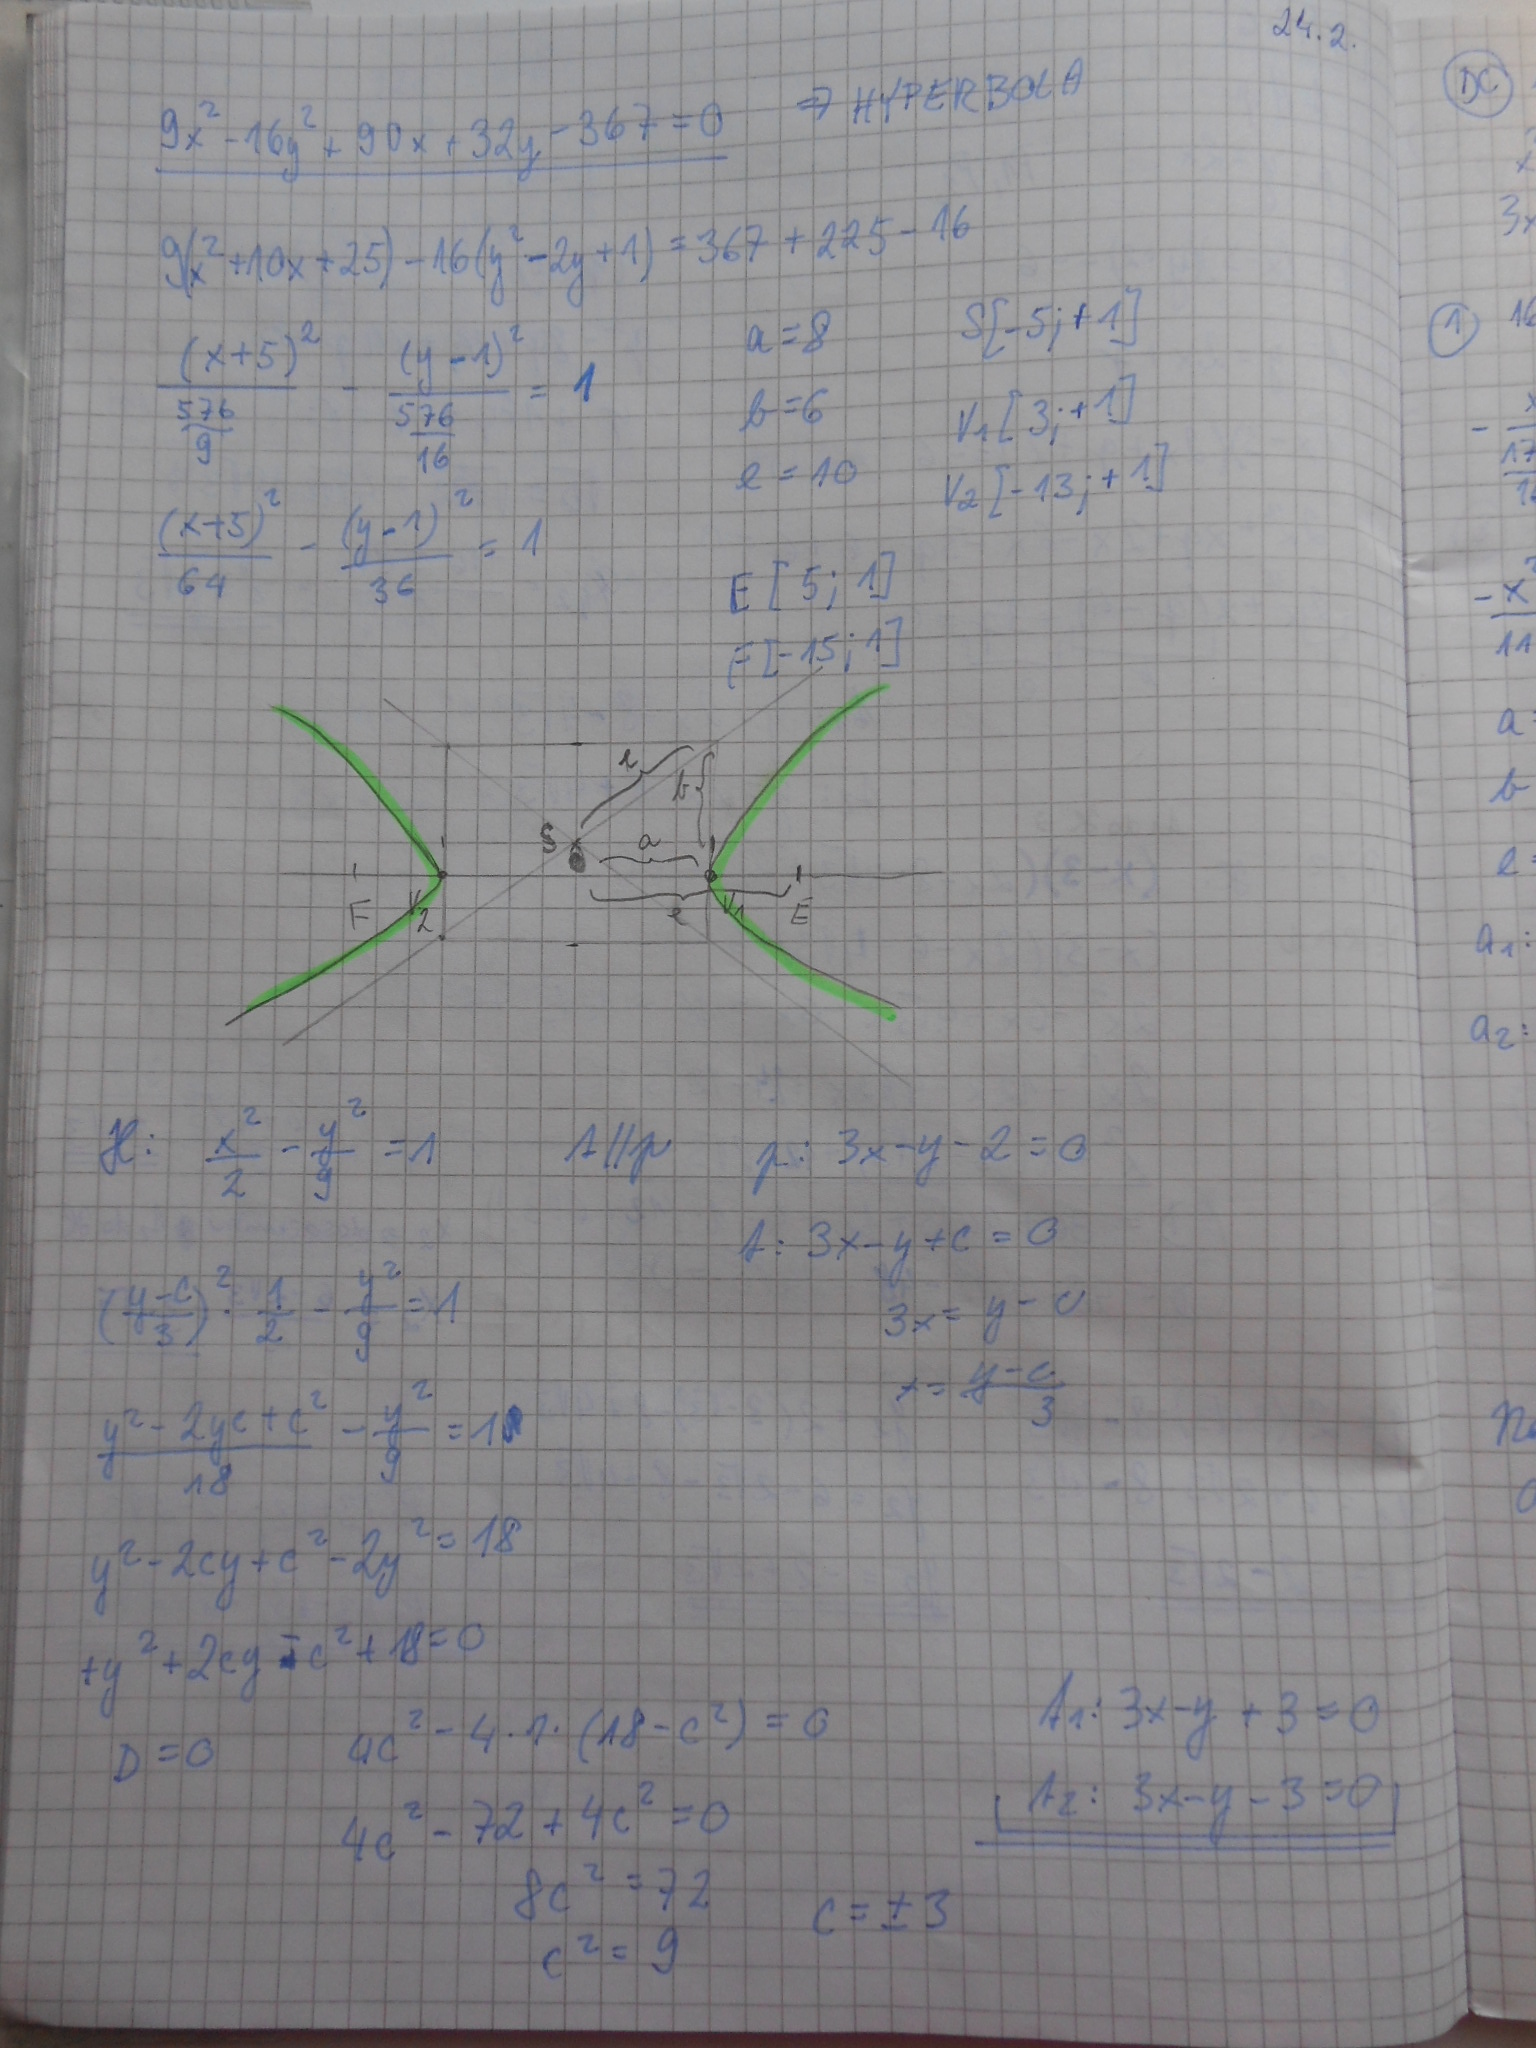 24.2.
9x² - 16y² + 90x + 32y - 367 = 0 ⇒ HYPERBOLA
9(x² + 10x + 25) - 16(y² - 2y + 1) = 367 + 225 - 16
(x+5)²/(576/9) - (y-1)²/(576/16) = 1
a = 8 S[-5; +1]
b = 6 V1[3; +1]
e = 10 V2[-13; +1]
(x+5)²/64 - (y-1)²/36 = 1
E[5; 1]
F[-15; 1]
e
b
S a
F V2 e V1 E
H: x²/2 - y²/9 = 1 t//p p: 3x - y - 2 = 0
t: 3x - y + c = 0
((y-c)/3)² · 1/2 - y²/9 = 1 3x = y - c
x = (y-c)/3
(y² - 2yc + c²)/18 - y²/9 = 1
y² - 2cy + c² - 2y² = 18
+y² + 2cy - c² + 18 = 0
D = 0 4c² - 4·1·(18 - c²) = 0
4c² - 72 + 4c² = 0
8c² = 72
c² = 9 c = ±3
t1: 3x - y + 3 = 0
t2: 3x - y - 3 = 0
DC
3x
1 16
a
b
e
a1:
a2: